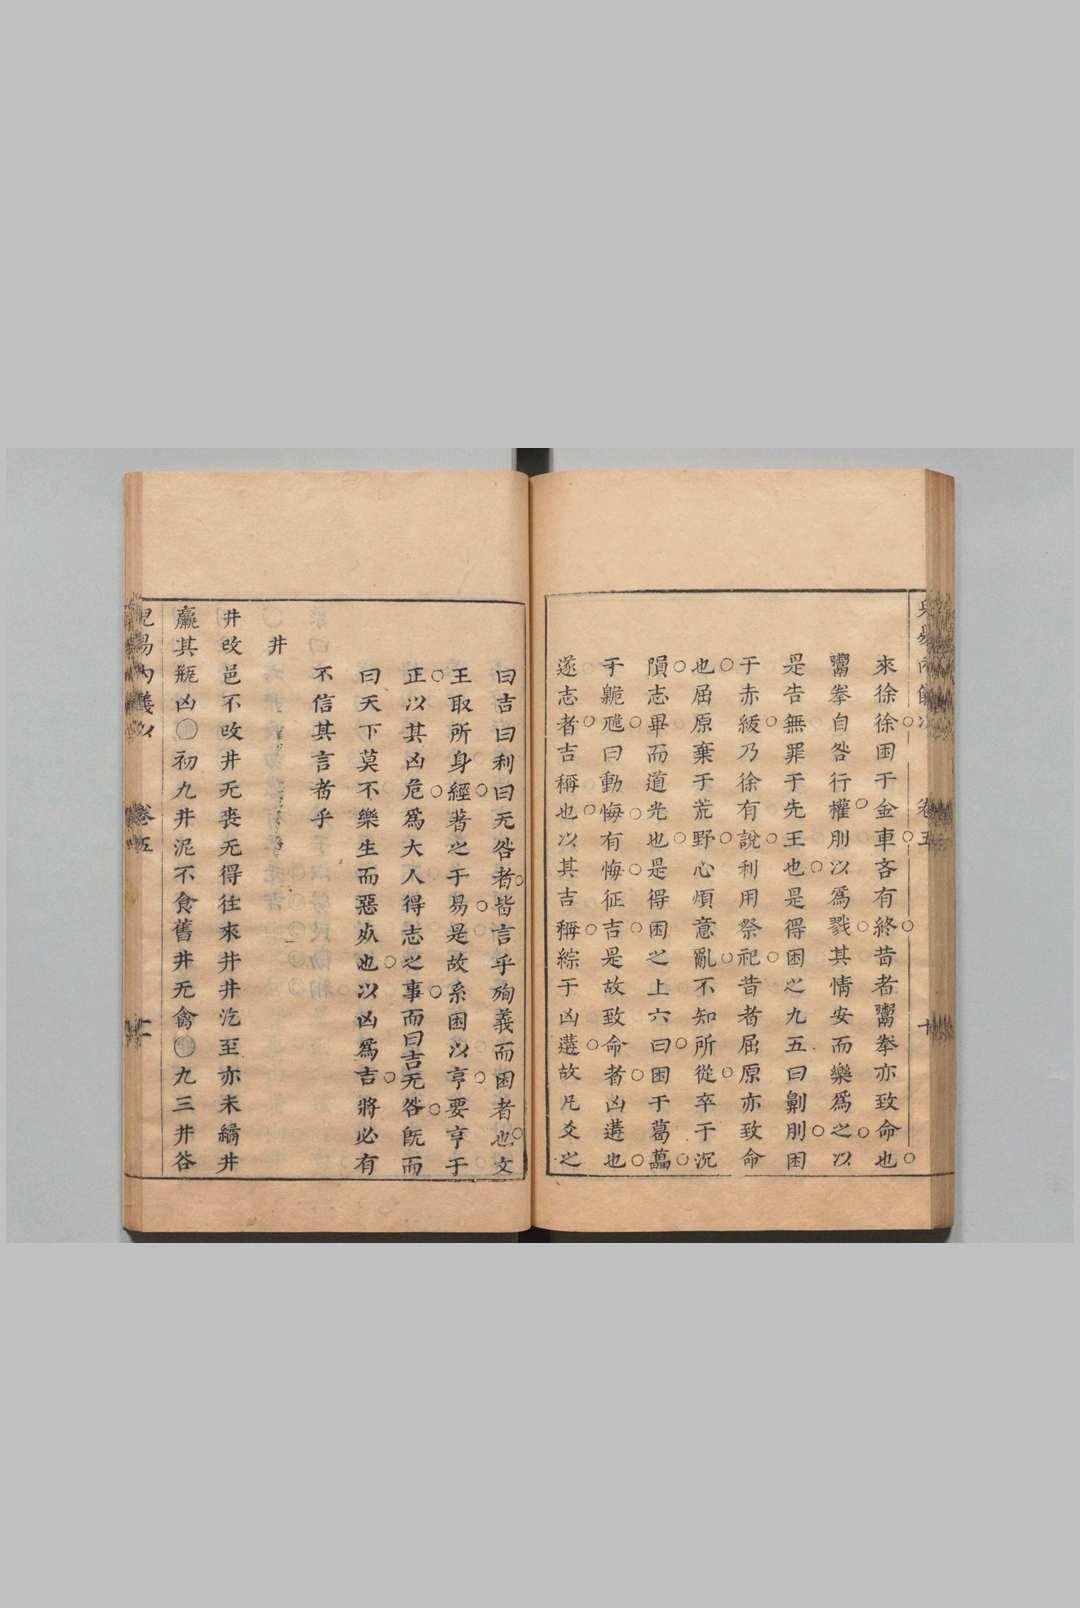 來徐徐困于金車吝有終昔者鬻拳亦致命也
鬻拳自咎行權刖以爲戮其情安而樂爲之以
是告無罪于先王也是得困之九五曰劓刖困
于赤紱乃徐有說利用祭祀昔者屈原亦致命
也屈原棄于荒野心煩意亂不知所從卒于沉
隕志畢而道光也是得困之上六曰困于葛藟
于臲卼曰動悔有悔征吉是故致命者凶遘也
遂志者吉稱也以其吉稱綜于凶遘故凡爻之
曰吉曰利曰无咎者皆言乎殉義而困者也文
王取所身經著之于易是故系困以亨要亨于
正以其凶危爲大人得志之事而曰吉无咎旣而
曰天下莫不樂生而惡死也以凶爲吉將必有
不信其言者乎
井
井改邑不改井无喪无得往來井井汔至亦未繘井
羸其瓶凶初九井泥不食舊井无禽九三井谷
兒易內儀以 卷五